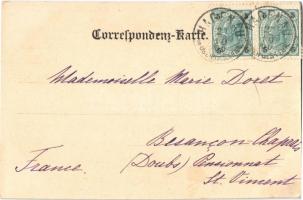 Correspondenz-Karte.
Mademoiselle Marie Doret
Besançon Chaprais
(Doubs) Pensionnat
France.
St. Vincent